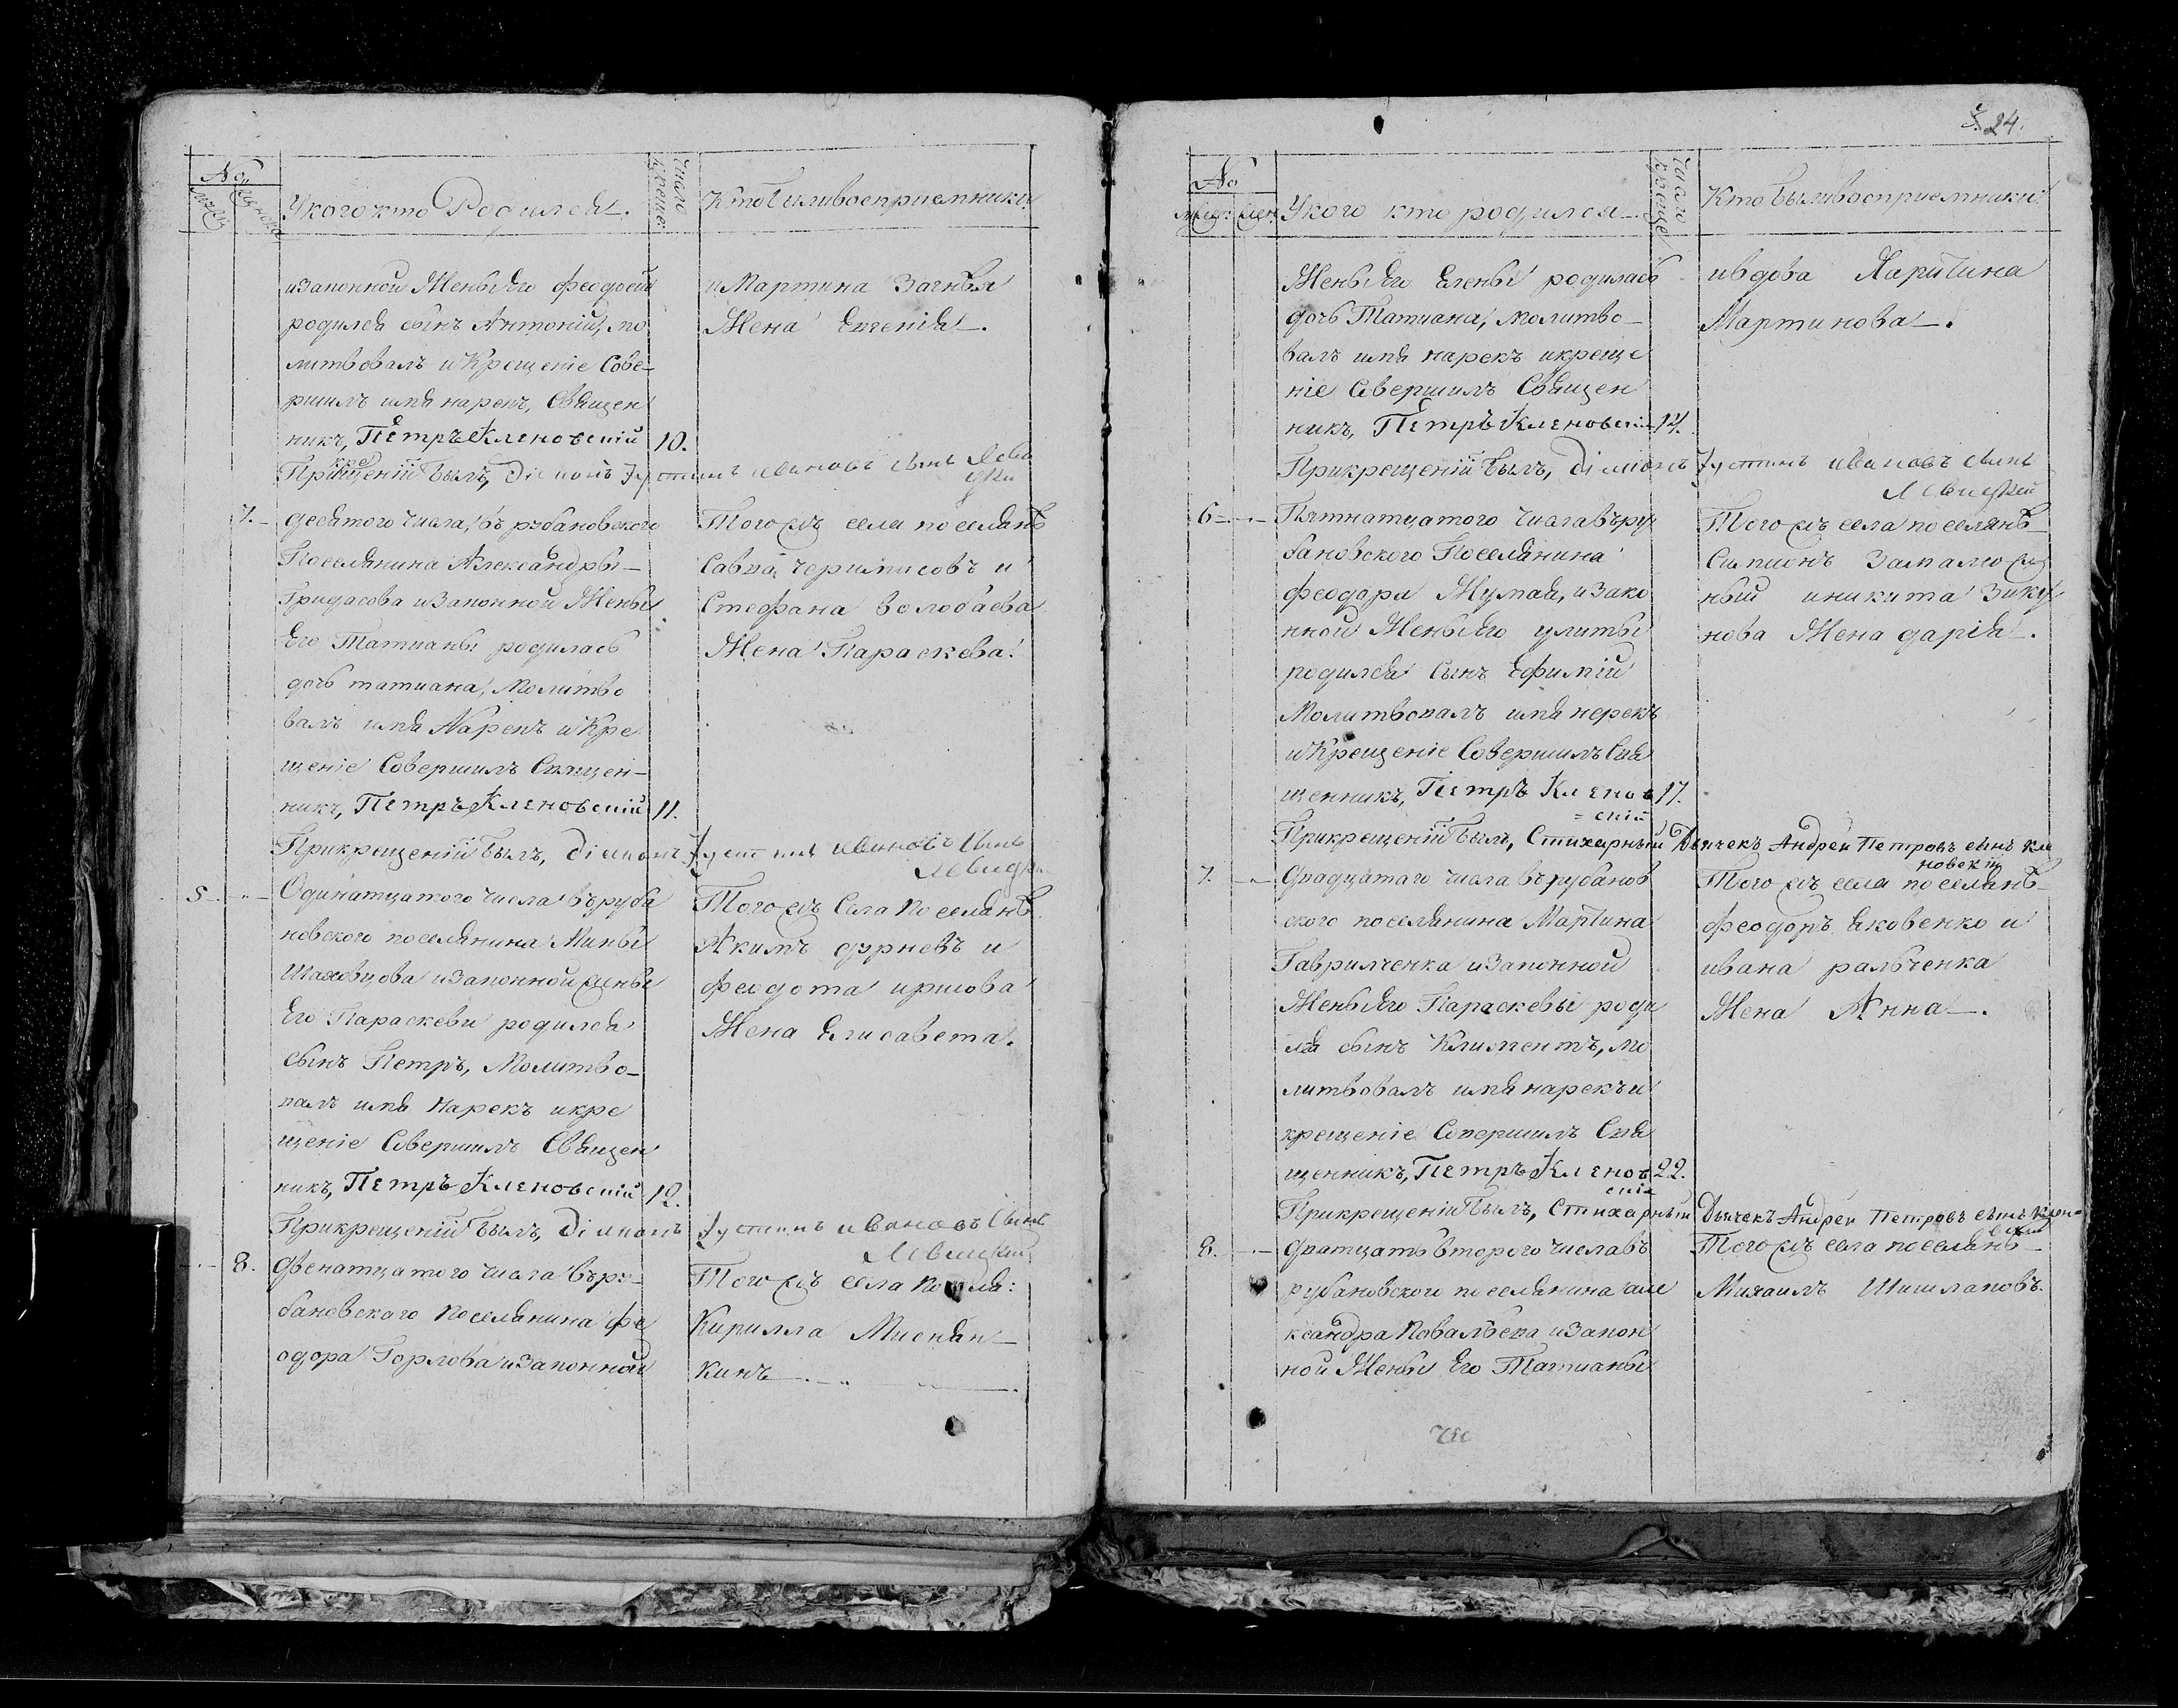 №
мужеск
женска
У кого кто Родился.
Число крещен:
Кто были восприемники
изаконной Жены Его феодосіи
родился сынъ Антоній, мо
литвовалъ и Крещеніе Сове-
ршилъ имя нарекъ, Священ
никъ, Петръ Кленовскій 10.
и Мартина Загнѣя
Жена Евгенія.
При крещеніи былъ, Діаконъ Іустинъ Ивановъ сынъ Леви
цкій
7. десятого числа, въ рубановского
Поселянина Александры
Гридасова изаконной Жены
Его Татианы родилась
дочь татиана, Молитво
валъ имя Нарекъ и Кре
щеніе Совершилъ Священ-
никъ, Петръ Кленовскій 11.
Того жъ села поселянъ
Савва, и
Стефана волобаева
Жена Параскева.
При крещеніи былъ, Діаконъ Іустинъ Ивановъ сынъ
Левицкій
5 Одинатцатого числа въ руба
новского поселянина Мины
Шаховцова изаконной жены
Его Параскеви родился
сынъ Петръ, Молитво-
валъ имя Нарекъ и кре
щеніе Совершилъ Священ
никъ, Петръ Кленовскій 12.
Того жъ Села Поселянъ
Акимъ и
Феодота
Жена Елисавета.
При крещеніи былъ, Діаконъ Іустинъ Ивановъ сынъ
Левицкій
8. двенатцатого числа въ ру-
бановскаго Поселянина фе
одора Горлова изаконной
Того жъ села Поселя:
Кирилла
кинъ
24.
№
муж: жен:
У кого кто родился
Число креще
Кто были восприемники
Жены Его Елены родилась
дочь Татиана, молитво-
валъ имя нарекъ и креще
ніе Совершилъ Священ
никъ, Петръ Кленовскій 14.
и вдова Харитина
Мартинова.
При крещеніи былъ, Діаконъ Іустинъ Ивановъ сынъ
Левицкій
6 Пятнатцатого числа въ ру
бановского Поселянина
феодора изако
нной Жены Его улиты
родился сынъ Ефимій
Молитвовалъ имя нерекъ
и Крещеніе Совершилъ Свя
щенникъ, Петръ Кленов 17.
= скій
Того жъ села поселянъ
ный иникита Зику
нова Жена дарія.
При крещеніи былъ, Стихарный Дьячекъ Андрей Петровъ сынъ Кле
новскій
7. Двадцатаго числа въ рубанов
ского поселянина Мартина
Гаврилченка изаконной
Жены Его Параскевы роди
лся сынъ Климентъ, мо
литвовалъ имя нарекъ и
крещеніе Совершилъ Свя
щенникъ, Петръ Кленов 22.
скій
Того жъ села поселянъ
Феодоръ Яковенко и
ивана ральченка
Жена Анна.
При крещеніи былъ, Стихарный Дьячекъ Андрей Петровъ сынъ Клено
вскій
8. Дватцать второго числа въ
рубановского поселянина але
ксандра Ковалѣва изакон
ной Жены Его Татианы
Того жъ села поселянъ
Михаилъ Шишлаковъ.